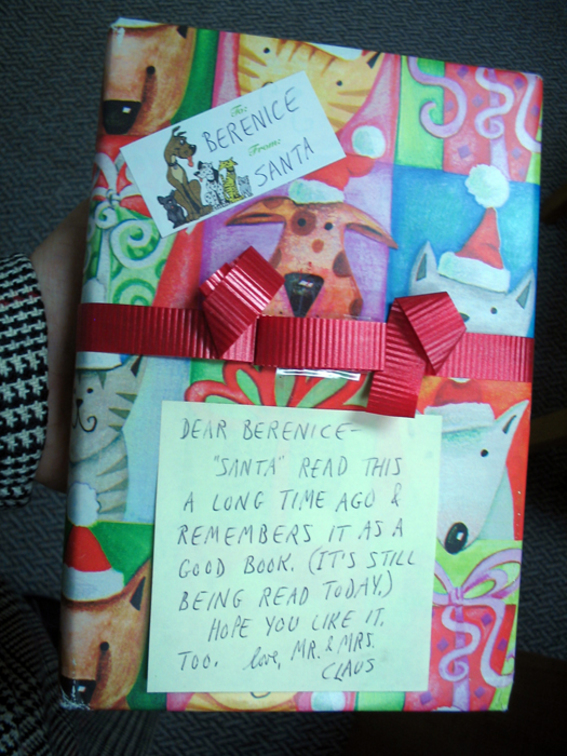 To:
BERENICE
From:
SANTA
DEAR BERENICE-
"SANTA" READ THIS
A LONG TIME AGO &
REMEMBERS IT AS A
GOOD BOOK. (IT'S STILL
BEING READ TODAY.)
HOPE YOU LIKE IT.
TOO. love, MR. & MRS.
CLAUS